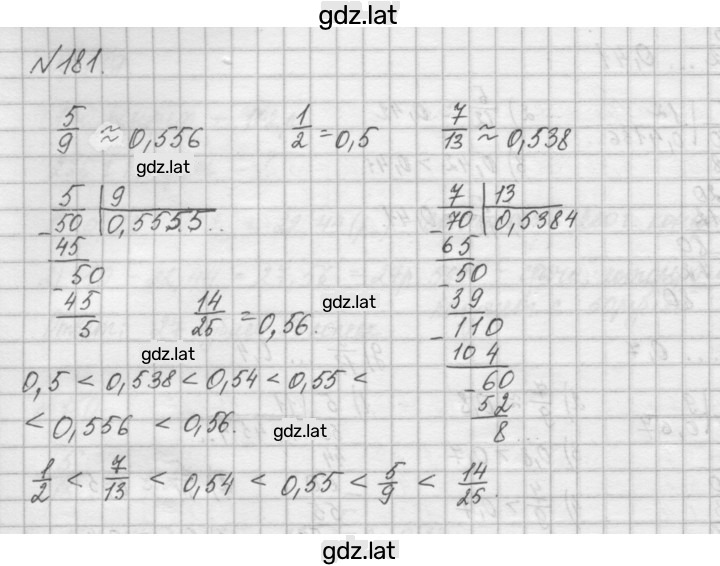 gdz.lat
№181.
5/9 ≈ 0,556 1/2 = 0,5 7/13 ≈ 0,538
gdz.lat
5 | 9 7 | 13
- 50 | 0,5555.. - 70 | 0,5384
45 65
- 50 - 50
45 14/25 = 0,56. gdz.lat 39
5 - 110
gdz.lat 104
0,5 < 0,538 < 0,54 < 0,55 < - 60
< 0,556 < 0,56. gdz.lat 52
8
1/2 < 7/13 < 0,54 < 0,55 < 5/9 < 14/25.
gdz.lat